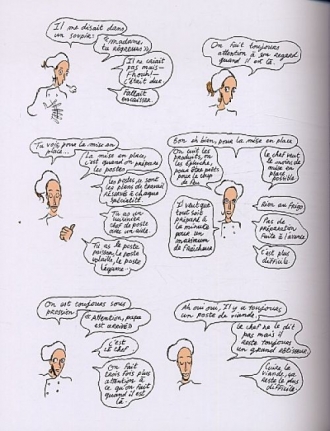 Il me disait dans
un soupir :
"Madame,
tu répèteras"
Il ne criait
pas mais...
C'était dur
Fallait
encaisser.
On fait toujours
attention à son regard
quand il est là.
Tu vois pour la mise en
place...
La mise en place,
c'est quand on prépare
les postes.
Les postes ce sont
les plans de travail
réservés à chaque
spécialité
Tu as un
cuisinier
chef de poste
avec un aide.
Tu as le poste
poisson, le poste
volaille, le poste
légume.
Bon eh bien, pour la mise en place
On cuit les
produits, on les épluche,
pour être prêts
pour le coup
de feu.
Il veut que
tout soit
préparé à
la minute
pour un
maximum de
fraîcheur.
Le chef veut
le moins de
mise en
place
possible.
Rien au frigo
Pas de
préparation
faite à l'avance
C'est plus
difficile
On est toujours sous
pression
"Attention, papa
est arrivé"
C'est
le chef.
On fait
trois fois plus
attention à
ce qu'on fait
quand il est
là.
Ah oui oui, il y a toujours
un poste de viande.
Le chef ne le dit
pas mais il
reste toujours
un grand rôtisseur.
Cuire la
viande, ça
reste le plus
difficile.